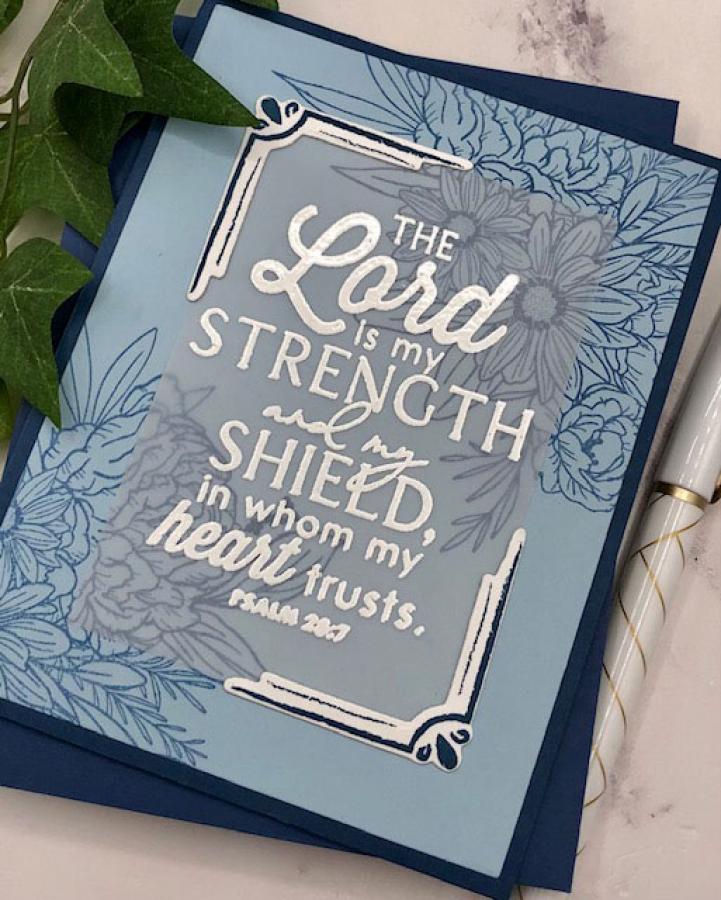 THE
Lord
is my
STRENGTH
and my
SHIELD,
in whom my
heart trusts.
PSALM 28:7